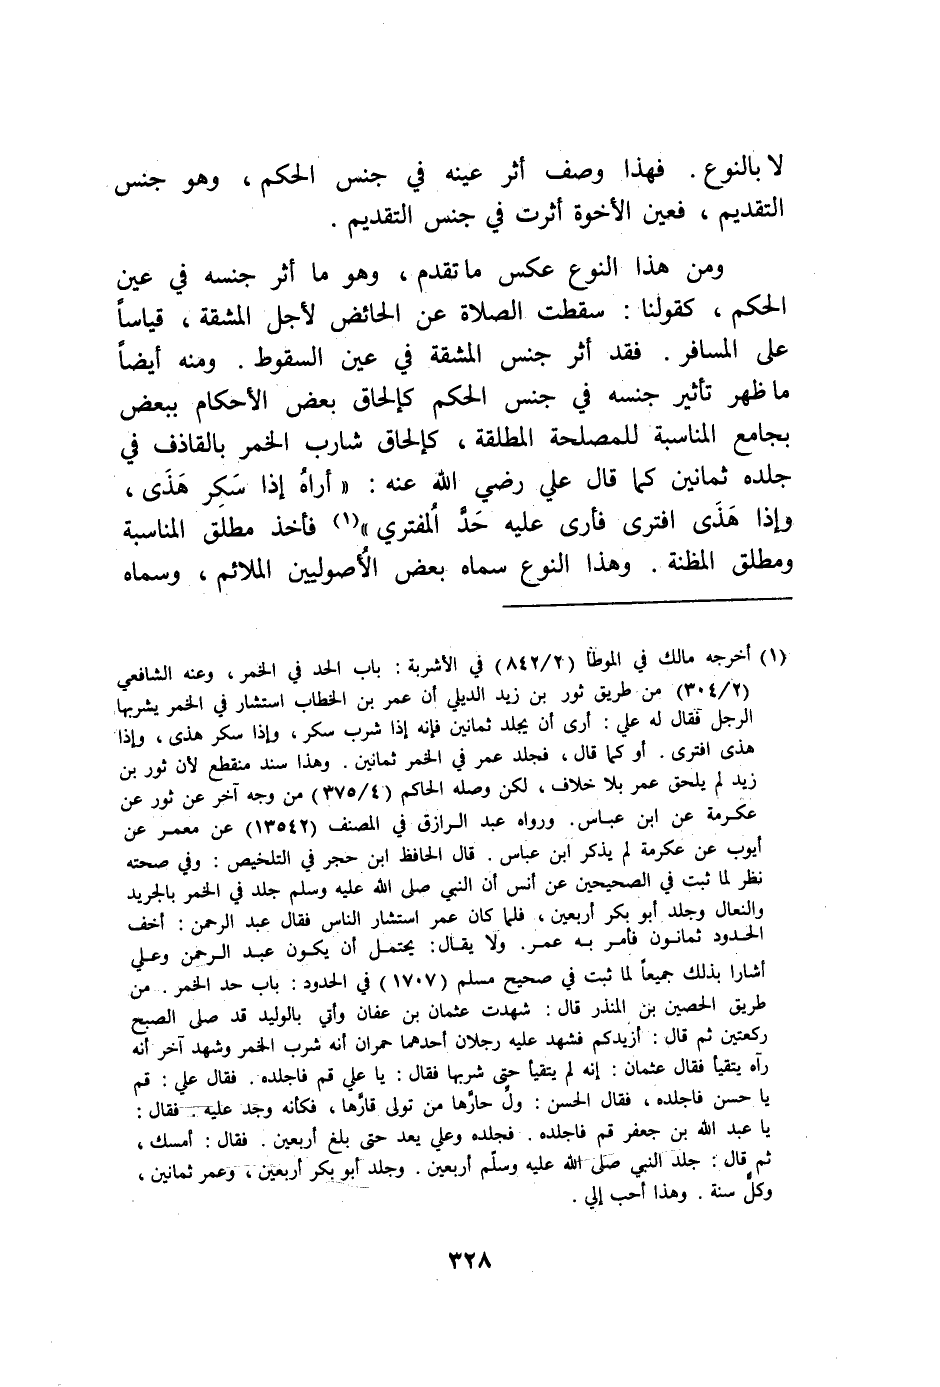 لا بالنوع . فهذا وصف أثر عينه في جنس الحكم ، وهو جنس
التقديم ، فعين الأخوة أثرت في جنس التقديم .
ومن هذا النوع عكس ما تقدم ، وهو ما أثر جنسه في عين
الحكم ، كقولنا : سقطت الصلاة عن الحائض لأجل المشقة ، قياساً
على المسافر . فقد أثر جنس المشقة في عين السقوط . ومنه أيضاً
ما ظهر تأثير جنسه في جنس الحكم كإلحاق بعض الأحكام ببعض
بجامع المناسبة للمصلحة المطلقة ، كإلحاق شارب الخمر بالقاذف في
جلده ثمانين كما قال علي رضي الله عنه : « أراهُ إذا سَكِر هَذَى ،
وإذا هَذَى افترى فأرى عليه حَدَّ المُفتري »(١) فأخذ مطلق المناسبة
ومطلق المظنة . وهذا النوع سماه بعض الأُصوليين الملائم ، وسماه
(١) أخرجه مالك في الموطأ (٨٤٢/٢) في الأشربة : باب الحد في الخمر ، وعنه الشافعي
(٣٠٤/٢) من طريق ثور بن زيد الديلي أن عمر بن الخطاب استشار في الخمر يشربها
الرجل فقال له علي : أرى أن يجلد ثمانين فإنه إذا شرب سكر ، وإذا سكر هذى ، وإذا
هذى افترى . أو كما قال ، فجلد عمر في الخمر ثمانين . وهذا سند منقطع لأن ثور بن
زيد لم يلحق عمر بلا خلاف ، لكن وصله الحاكم (٣٧٥/٤) من وجه آخر عن ثور عن
عكرمة عن ابن عباس. ورواه عبد الرازق في المصنف (١٣٥٤٢) عن معمر عن
أيوب عن عكرمة لم يذكر ابن عباس . قال الحافظ ابن حجر في التلخيص : وفي صحته
نظر لما ثبت في الصحيحين عن أنس أن النبي صلى الله عليه وسلم جلد في الخمر بالجريد
والنعال وجلد أبو بكر أربعين ، فلما كان عمر استشار الناس فقال عبد الرحمن : أخف
الحدود ثمانون فأمر به عمر. ولا يقال: يحتمل أن يكون عبد الرحمن وعلي
أشارا بذلك جميعاً لما ثبت في صحيح مسلم (١٧٠٧) في الحدود : باب حد الخمر . من
طريق الحصين بن المنذر قال : شهدت عثمان بن عفان وأتي بالوليد قد صلى الصبح
ركعتين ثم قال : أزيدكم فشهد عليه رجلان أحدهما حمران أنه شرب الخمر وشهد آخر أنه
رآه يتقيأ فقال عثمان : إنه لم يتقيأ حتى شربها فقال : يا علي قم فاجلده. فقال علي : قم
يا حسن فاجلده ، فقال الحسن : ولِّ حارَّها من تولى قارَّها ، فكأنه وجد عليه . فقال :
يا عبد الله بن جعفر قم فاجلده. فجلده وعلي يعد حتى بلغ أربعين . فقال : أمسك ،
ثم قال : جلد النبي صلى الله عليه وسلّم أربعين . وجلد أبو بكر أربعين ، وعمر ثمانين ،
وكلٌّ سنة . وهذا أحب إلي .
٣٢٨